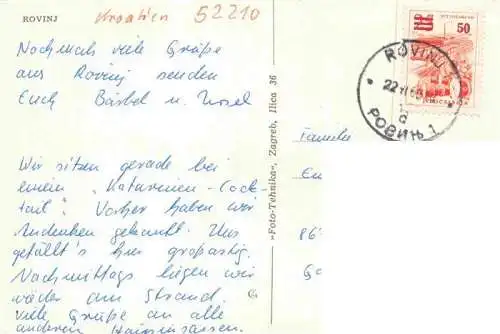 ROVINJ
Kroatien 52210
Nochmals viele Grüße
aus Rovinj senden
Euch Bärbel u. Ursel
Wir sitzen gerade bei
einem "Katarinen-Cock-
tail". Vorher haben wir
Andenken gekauft. Uns
gefällt's hier großartig.
Nachmittags liegen wir
wieder am Strand.
Viele Grüße an alle
anderen
»Foto-Tehnika«, Zagreb, Ilica 36
50
ROVINJ
РОВИЊ 1
Familie
86